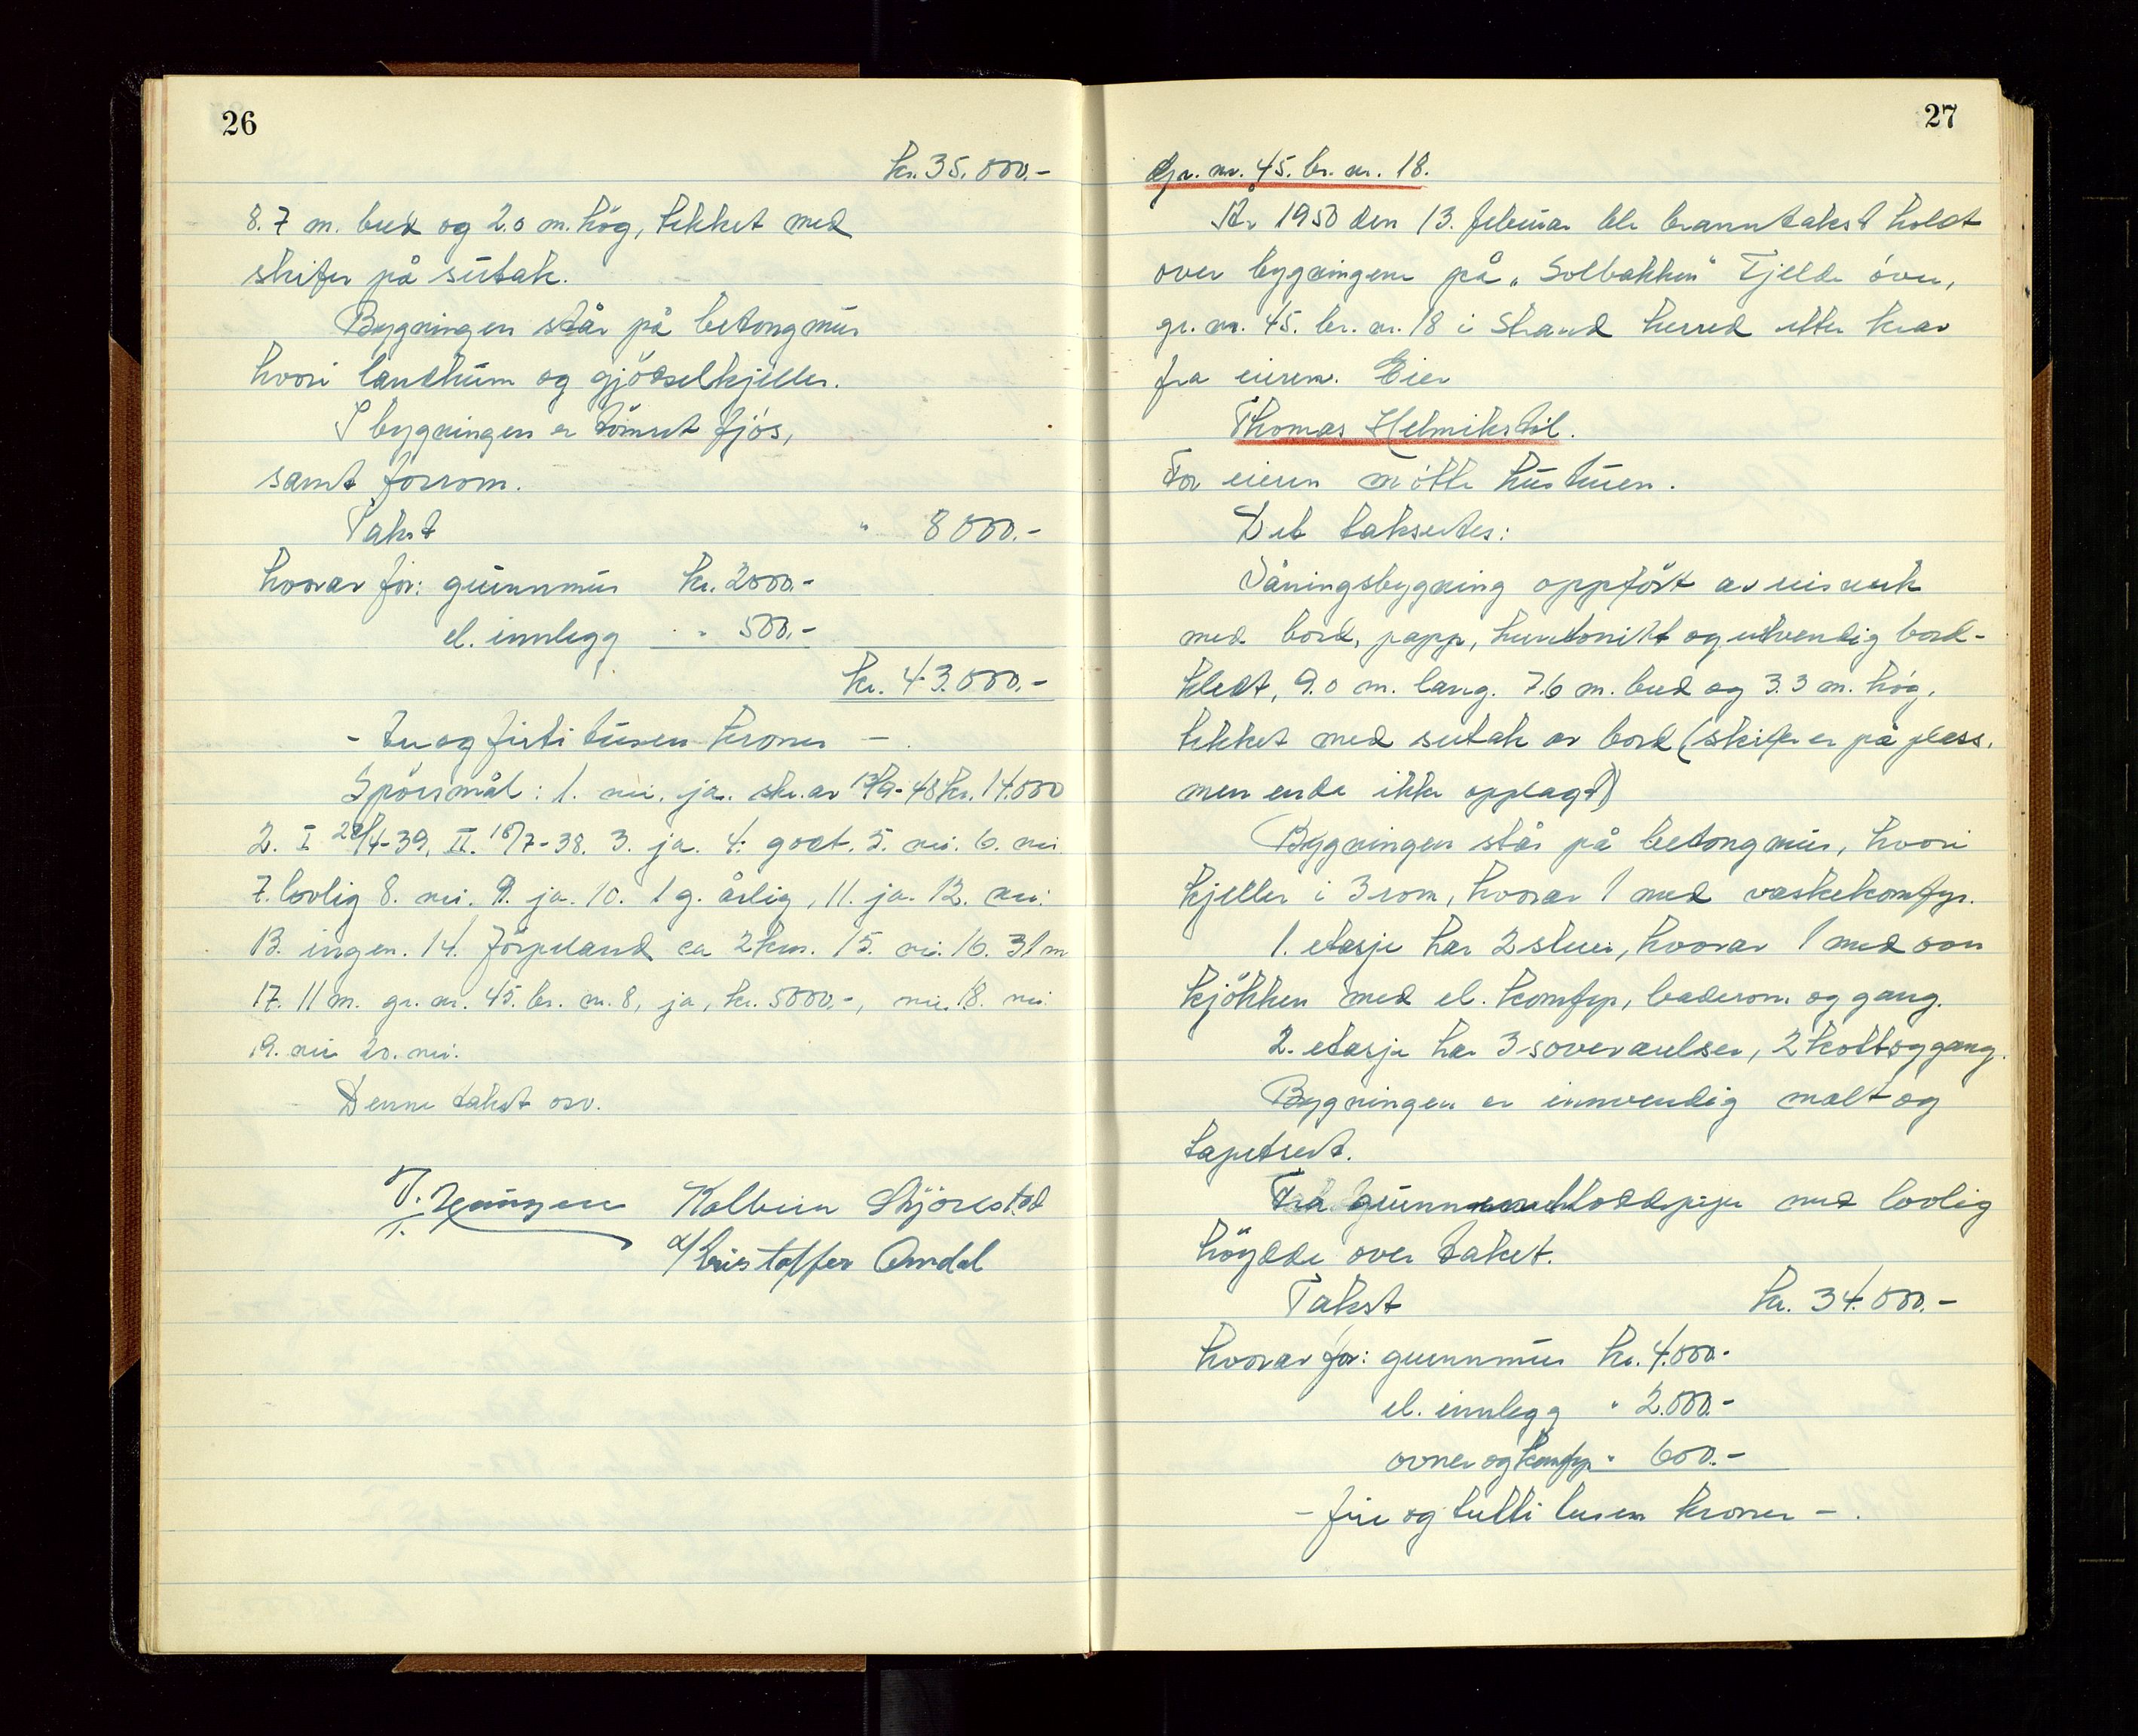 26
kr. 35.000.-
8.7 m. bred og 2.0 m. hög, tekket med
skifer på sutak.
Bygningen står på betongmur
hvori landkum og gjödselkjeller.
I bygningen er tömret fjös,
samt forrom.
Takst " 8000.-
hvorav for: grunnmur kr. 2000.-
el. innlegg " 500.-
kr. 43.000.-
- tre og firti tusen kroner -
Spörsmål: 1. nei. ja. skr. av 13/9-48 kr. 14.000
2. I 28/4-39, II. 18/7-38. 3. ja. 4. godt. 5. nei. 6. nei
7. lovlig 8. nei. 9. ja. 10. 1 g. årlig, 11. ja. 12. nei.
13. ingen. 14. Jörpeland ca 2 km. 15. nei. 16. 31 m
17. 11 m. gr. nr. 45. br. nr. 8, ja, kr. 5000.-, nei. 18. nei.
19. nei 20. nei.
Denne takst osv.
Kolbein Skjörestad
Kristoffer Amdal
27
Gr. nr. 45. br. nr. 18.
År 1950 den 13. februar ble branntakst holdt
over bygningene på "Solbakken" Fjelde övre,
gr. nr. 45. br. nr. 18 i Strand herred etter krav
fra eieren. Eier
Thomas Helmikstöl.
For eieren mötte hustruen.
Det taksertes:
Våningsbygning oppfört av reisverk
med bord, papp, huntonitt og utvendig bord-
kledt, 9.0 m. lang. 7.6 m. bred og 3.3 m. hög,
tekket med sutak av bord (skifer er på plass.
men enda ikke opplagt)
Bygningen står på betongmur, hvori
kjeller i 3 rom, hvorav 1 med vaskekomfyr.
1. etasje har 2 stuer, hvorav 1 med ovn
kjökken med el. komfyr, baderom og gang.
2. etasje har 3 soveværelser, 2 kott og gang.
Bygningen er innvendig malt og
tapetsert.
Fra grunnen kloddpipe med lovlig
höydde over taket.
Takst kr. 34.000.-
hvorav for: grunnmur kr. 4.000.-
el. innlegg " 2.000.-
ovner og komfyr " 600.-
- fire og tretti tusen kroner -.